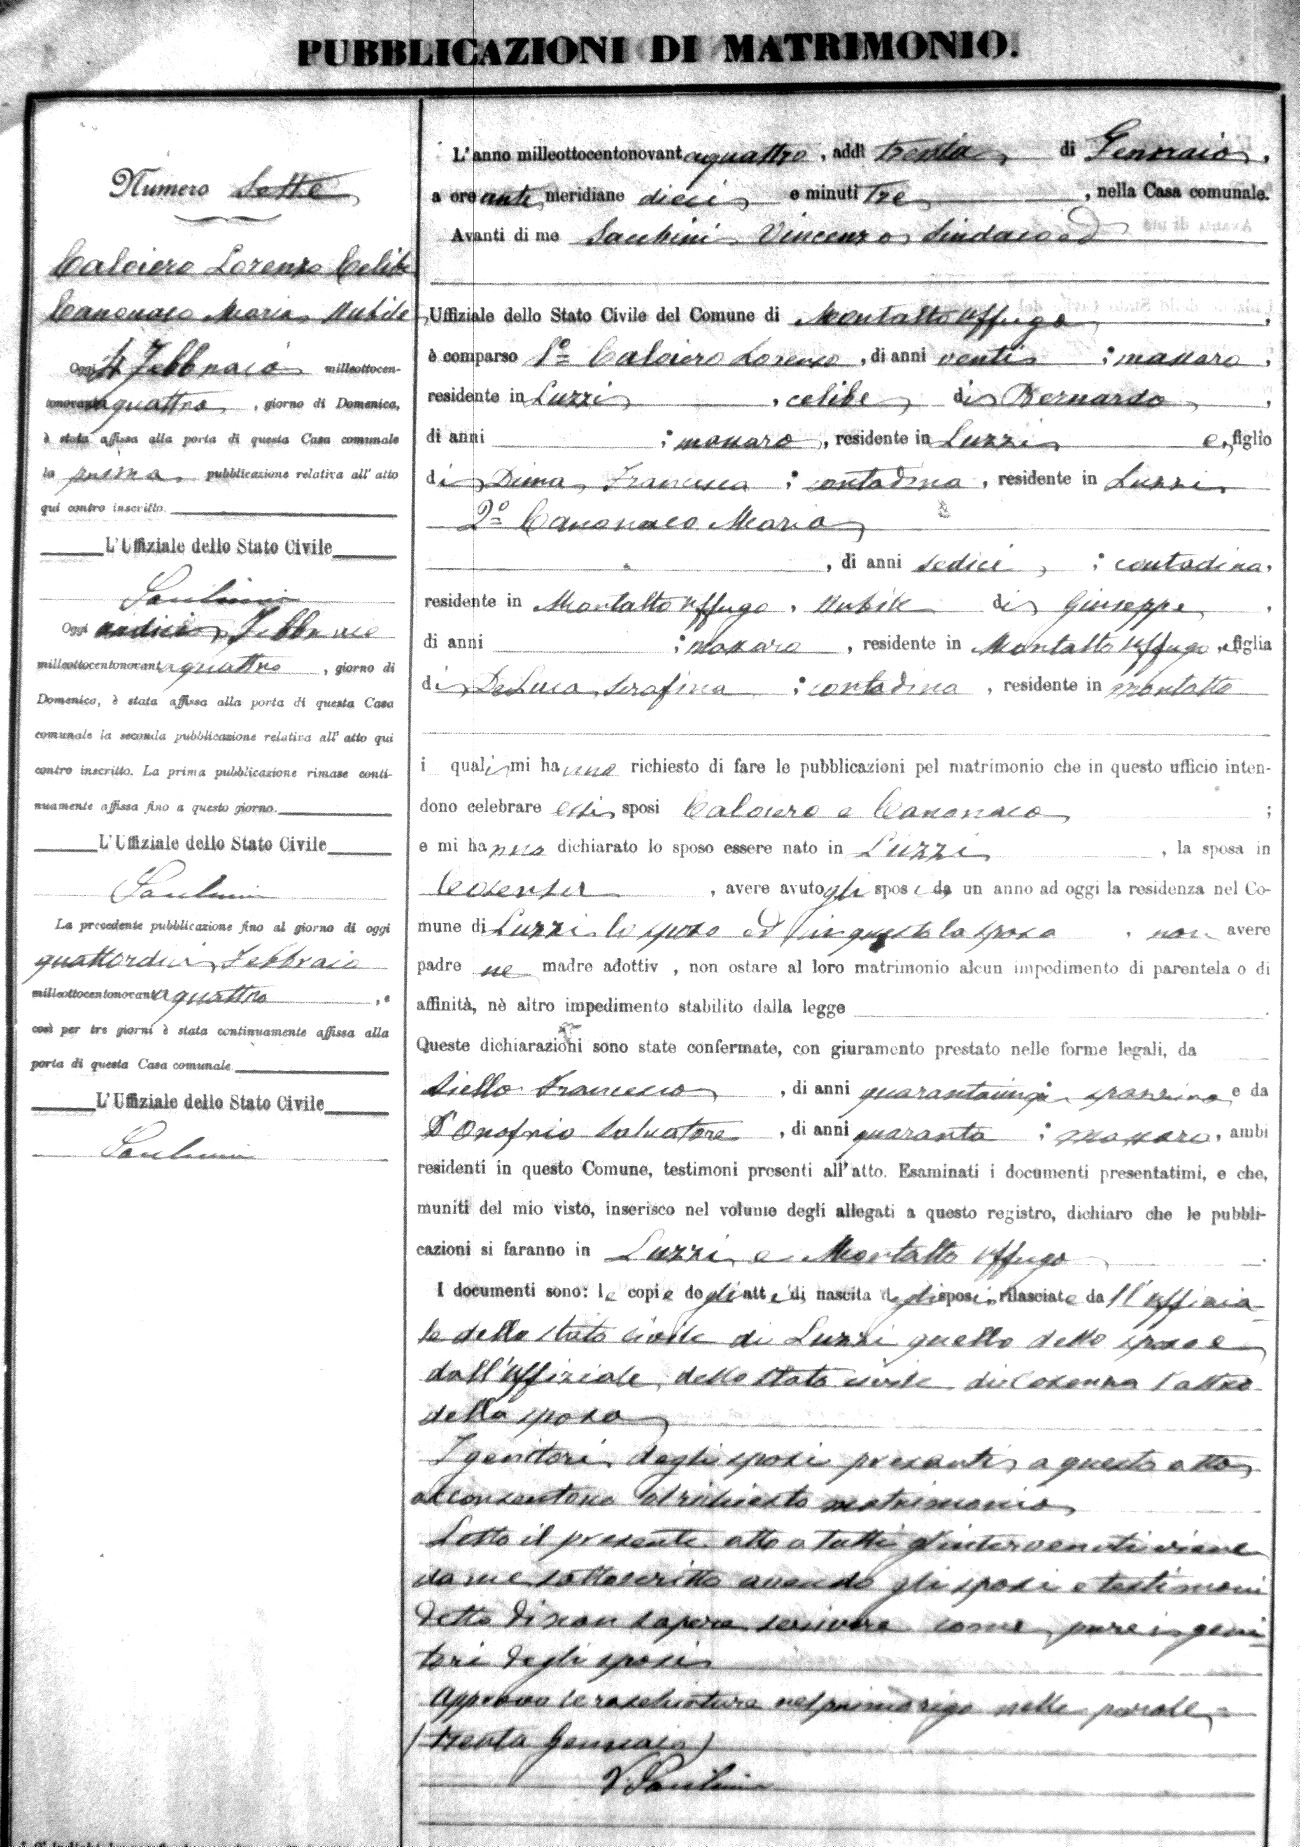 PUBBLICAZIONI DI MATRIMONIO.
Numero Sette
Calciero Lorenzo Celibe
Canonaco Maria Nubile
Oggi 4 Febbraio milleottocen-
tonovantaquattro, giorno di Domenica,
è stata affissa alla porta di questa Casa comunale
la prima pubblicazione relativa all' atto
qui contro inscritto.
L'Uffiziale dello Stato Civile
Oggi undici Febbraio
milleottocentonovantaquattro, giorno di
Domenica, è stata affissa alla porta di questa Casa
comunale la seconda pubblicazione relativa all' atto qui
contro inscritto. La prima pubblicazione rimase conti-
nuamente affissa fino a questo giorno.
L'Uffiziale dello Stato Civile
La precedente pubblicazione fino al giorno di oggi
quattordici Febbraio
milleottocentonovantaquattro, e
così per tre giorni è stata continuamente affissa alla
porta di questa Casa comunale
L'Uffiziale dello Stato Civile
L'anno milleottocentonovantaquattro, addì trenta di Gennaio,
a ore anti meridiane dieci e minuti tre, nella Casa comunale.
Avanti di me Vincenzo Sindaco ed
Uffiziale dello Stato Civile del Comune di Montalto Uffugo,
è comparso 1º Calciero Lorenzo, di anni venti; massaro,
residente in Luzzi, celibe di Bernardo,
di anni ; massaro, residente in Luzzi e figlio
di Dima Francesca; contadina, residente in Luzzi
2º Canonaco Maria
, di anni sedici; contadina,
residente in Montalto Uffugo, nubile di Giuseppe,
di anni ; massaro, residente in Montalto Uffugo, e figlia
di De Luca Serafina; contadina, residente in Montalto
i quali mi hanno richiesto di fare le pubblicazioni pel matrimonio che in questo ufficio inten-
dono celebrare essi sposi Calciero e Canonaco;
e mi hanno dichiarato lo sposo essere nato in Luzzi, la sposa in
Cosenza, avere avuto gli sposi da un anno ad oggi la residenza nel Co-
mune di Luzzi lo sposo ed in questo la sposa, non avere
padre ne madre adottiv , non ostare al loro matrimonio alcun impedimento di parentela o di
affinità, nè altro impedimento stabilito dalla legge
Queste dichiarazioni sono state confermate, con giuramento prestato nelle forme legali, da
Aiello Francesco, di anni e da
D'Onofrio Salvatore, di anni quaranta; massaro, ambi
residenti in questo Comune, testimoni presenti all'atto. Esaminati i documenti presentatimi, e che,
muniti del mio visto, inserisco nel volume degli allegati a questo registro, dichiaro che le pubbli-
cazioni si faranno in Luzzi e Montalto Uffugo
I documenti sono: le copie degli atti di nascita degli sposi, rilasciate dall'Uffizia-
le dello stato civile di Luzzi quello dello sposo e
dall'Uffiziale dello stato civile di Cosenza l'altro
della sposa
I genitori degli sposi presenti a questo atto
acconsentono al richiesto matrimonio
Letto il presente atto a tutti gl'intervenuti viene
da me sottoscritto avendo gli sposi e testimoni
detto di non sapere scrivere come pure i geni-
tori degli sposi
Approvo le raschiature nel primo rigo nelle parole =
(trenta Gennaio)